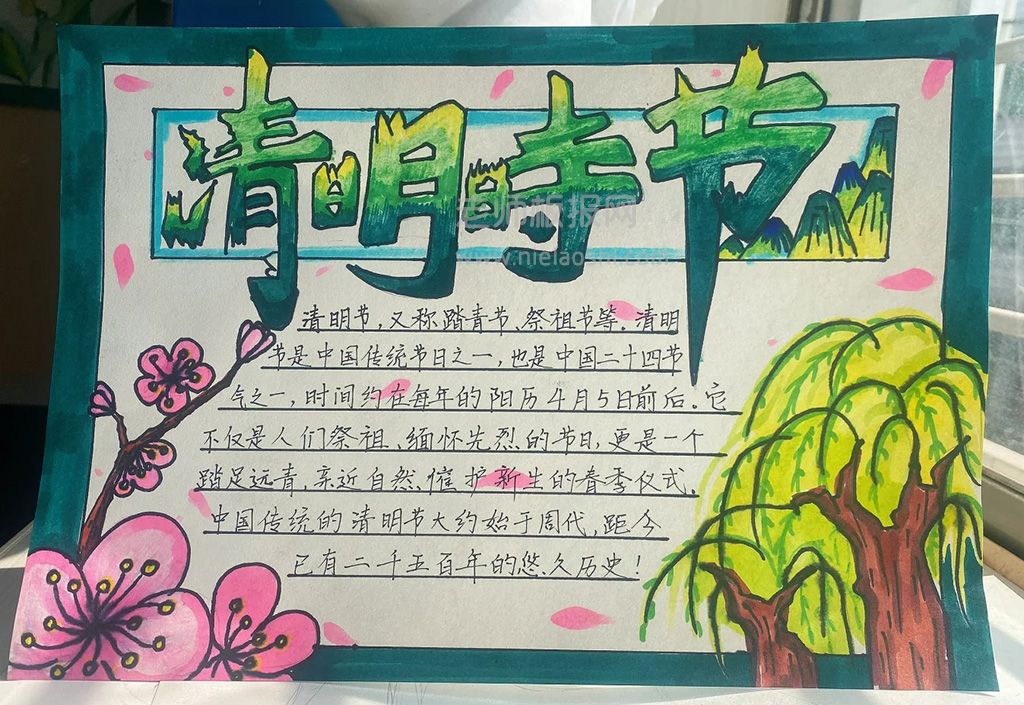 清明时节
清明节,又称踏青节、祭祖节等。清明
节是中国传统节日之一,也是中国二十四节
气之一,时间约在每年的阳历4月5日前后。它
不仅是人们祭祖、缅怀先烈的节日,更是一个
踏足远青,亲近自然、催护新生的春季仪式。
中国传统的清明节大约始于周代,距今
已有二千五百年的悠久历史!
老师板报网